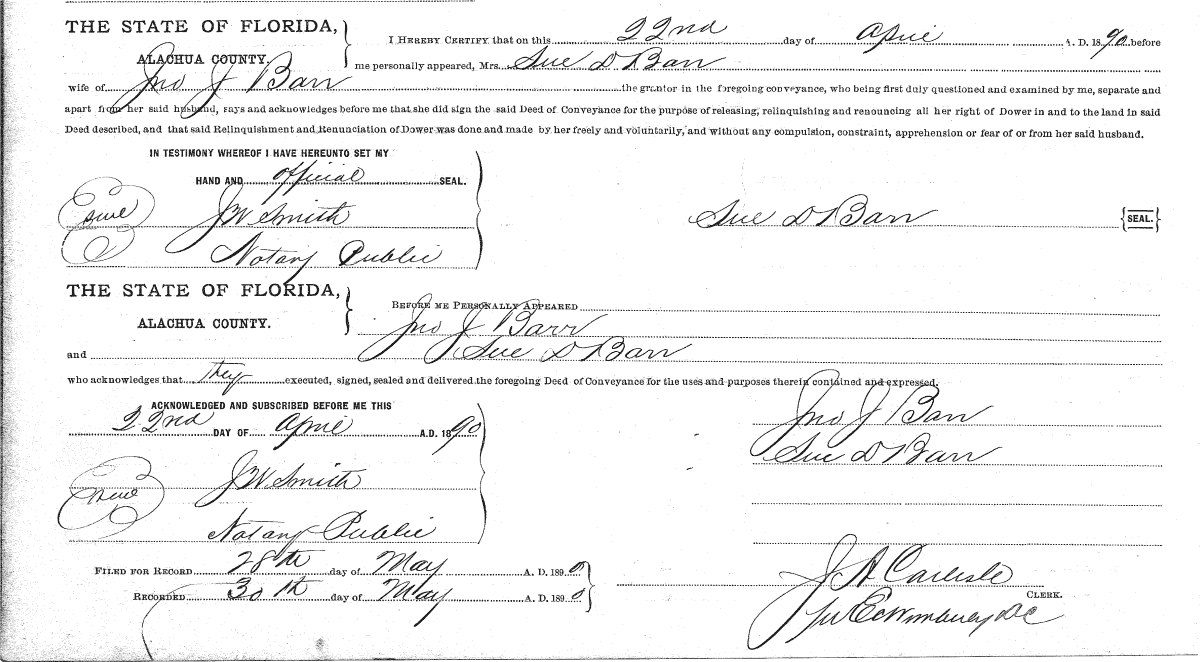 THE STATE OF FLORIDA,
ALACHUA COUNTY.
I HEREBY CERTIFY that on this 22nd day of April A. D. 1890 before
me personally appeared, Mrs. Sue D Barr
wife of Jno J Barr the grantor in the foregoing conveyance, who being first duly questioned and examined by me, separate and
apart from her said husband, says and acknowledges before me that she did sign the said Deed of Conveyance for the purpose of releasing, relinquishing and renouncing all her right of Dower in and to the land in said
Deed described, and that said Relinquishment and Renunciation of Dower was done and made by her freely and voluntarily, and without any compulsion, constraint, apprehension or fear of or from her said husband.
IN TESTIMONY WHEREOF I HAVE HEREUNTO SET MY
HAND AND official SEAL.
J W Smith
Notary Public
Sue D Barr {SEAL.}
THE STATE OF FLORIDA,
ALACHUA COUNTY.
BEFORE ME PERSONALLY APPEARED
Jno J Barr
and Sue D Barr
who acknowledges that they executed, signed, sealed and delivered the foregoing Deed of Conveyance for the uses and purposes therein contained and expressed.
ACKNOWLEDGED AND SUBSCRIBED BEFORE ME THIS
22nd DAY OF April A.D. 1890
J W Smith
Notary Public
Jno J Barr
Sue D Barr
FILED FOR RECORD 28th day of May A. D. 1890
RECORDED 30th day of May A. D. 1890
J A Carlisle
CLERK.
DC